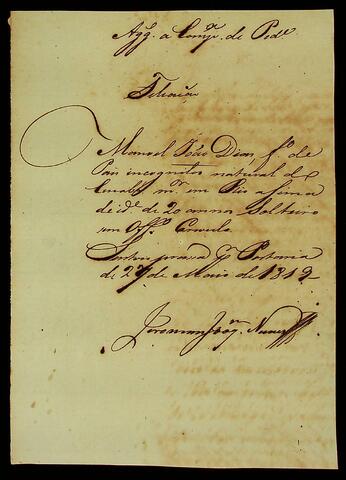 Agg. a Comp.ª de Ped.es
Filiação
Manoel João Dias, f.º de
Pais incognitos natural de
m.or em Rio asima
de id.e de 20 annos Solteiro
sem Off.º
praça p Portaria
de 27 de Maio de 1819
Jeronimo Joaq.m Nunes